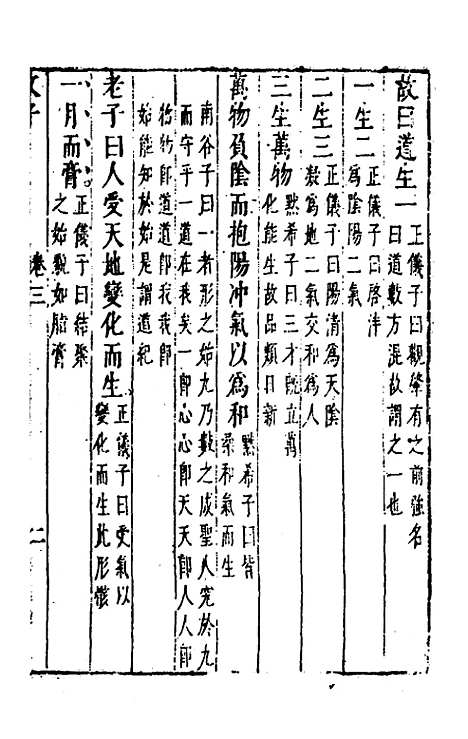 故曰道生一正儀子曰觀肇有之前強名
曰道數方混故謂之一也
一生二正儀子曰啓泮
爲陰陽二氣
二生三正儀子曰陽清爲天陰
數爲地二氣交和爲人
三生萬物默希子曰三才既立萬
化能生故品類日新
萬物負陰而抱陽冲氣以爲和默希子曰皆
稟和氣而生
南谷子曰一者形之始九乃數之成聖人究於九
而守乎一道在我矣一卽心心卽天天卽人人卽
物物卽道道卽我我卽
始能知於始是謂道紀
老子曰人受天地變化而生正儀子曰受氣以
變化而生此形骸
一月而膏正儀子曰結聚
之始貌如脂膏
文子
卷三
二